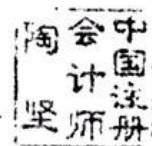 中国注册
会计师
陶坚